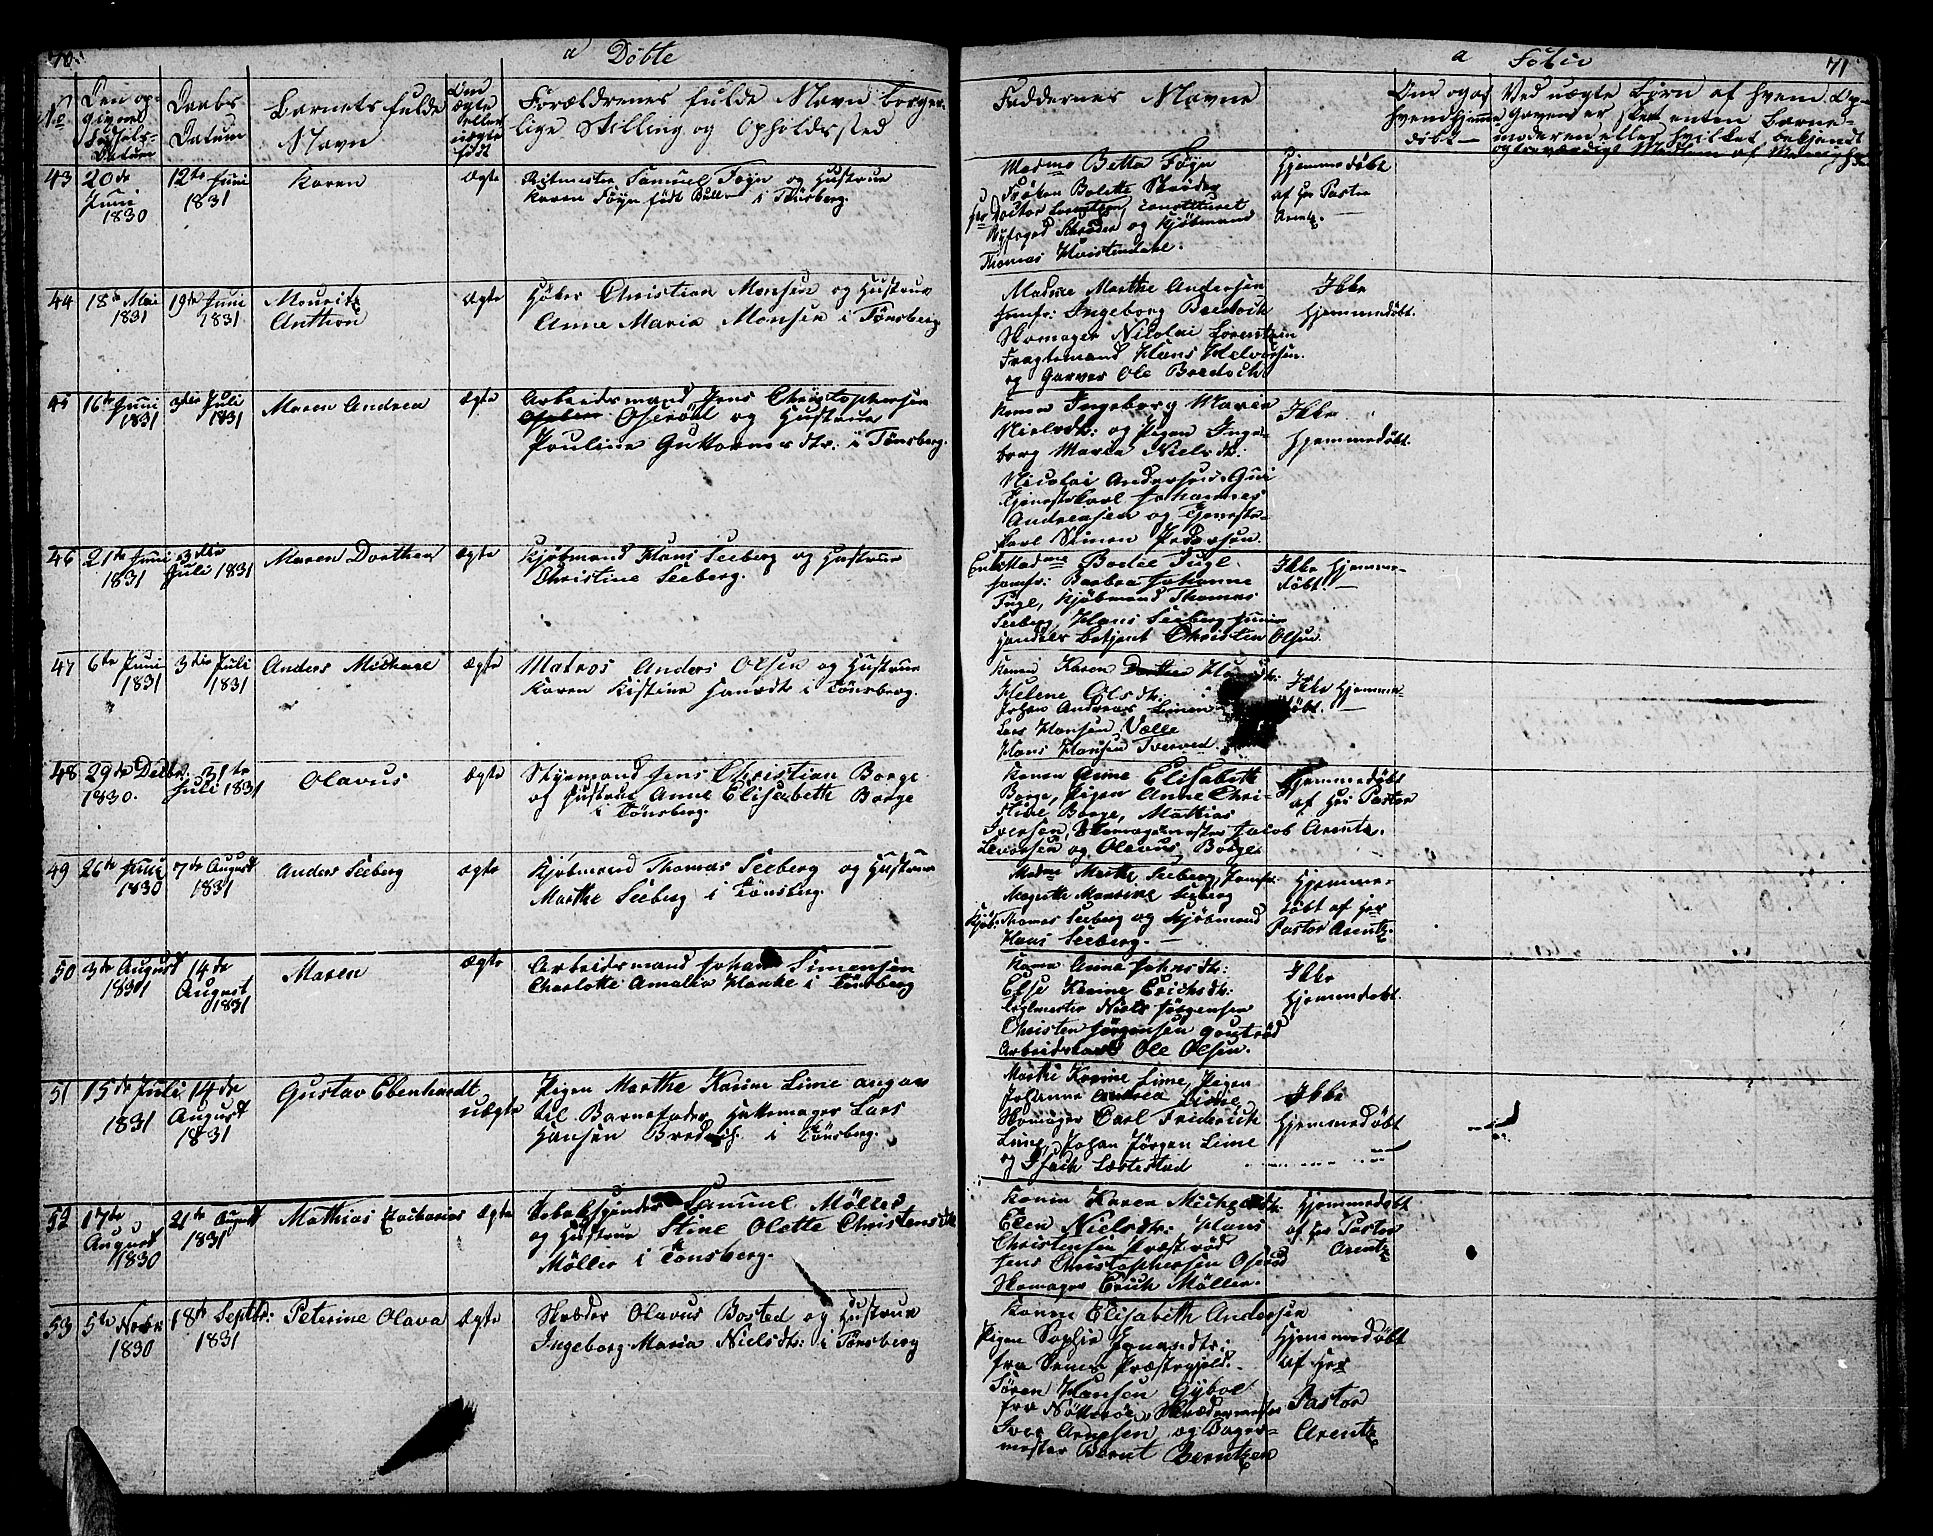 70.
a Döbte
No
Den op-
given
Födsels-
Datum
Daabs
Datum
Barnets fulde
Navn
Om
ægte
eller
uægte
födt
Forældrenes fulde Navn, borger-
lige Stilling og Opholdssted
43
20de
Juni
1830
12te Juni
1831
Karen
ægte
Ritmester Samuel Foyn og Hustrue
Karen Foyn födt Bull i Tönsberg.
44
18de Mai
1831
19de Juni
1831
Mouritz
Anthon
ægte
Höker Christian Monsen og Hustrue
Anne Maria Monsen i Tönsberg
45
16de Juni
1831
3die Juli
1831
Maren Andrea
ægte
Arbeidsmand Jens Christophersen
Oseröd og Hustrue
Pauline Guttormsdtr. i Tönsberg.
46
21de Juni
1831
3die
Juli 1831
Maren Dorthea
ægte
Kjöbmand Hans Seeberg og Hustrue
Christine Seeberg.
47
6te Juni
1831
3die Juli
1831
Anders Michael
ægte
Matros Anders Olsen og Hustrue
Karen Kistine Hansdtr i Tönsberg.
48
29de Decbr.
1830.
31te
Juli 1831
Olavus
ægte
Styrmand Jens Christian Borge
og Hustrue Anne Elisabeth Borge
i Tönsberg.
49
26de Juni
1830
7de August
1831
Anders Seeberg
ægte
Kjöbmand Thomas Seeberg og Hustrue
Marthe Seeberg i Tönsberg.
50
3de August
1831
14de
August
1831
Maren
ægte
Arbeidsmand Johan Simensen
Charlotte Amalia Hanke i Tönsberg
51
15de Juli
1831
14de
August
1831
Gustav Ebenhardt
uægte
Pigen Marthe Karine Lime angav
til Barnefader, Hattemager Lars
Hansen Bredoch. i Tönsberg.
52
17de
August
1830
21de August
1831
Mathias Zacharias
ægte
Tobaksspinder Samuel Möller
og Hustrue Stine Olette Christensdtr
Möller i Tönsberg.
53
5te Novbr
1830
18de Septbr:
1831
Peterine Olava
ægte
Skræder Olavus Bosted og Hustrue
Ingeborg Maria Nielsdtr: i Tönsberg
a Folio
71
Faddernes Navne
Om og af
hvem hjemme
döbt
Ved uægte Börn af hvem Op-
gaven er skeet enten Barne-
moderen eller hvilket bekjendt
og troværdigt Medlem af Menigh.
Madme Betta Foyn
Fröken Bolette Schröder
Hr Doctor Lorentzen, constitueret
Byfoged Schröder og Kjöbmand
Thomas Hvistendahl.
Hjemmedöbt
af Hr Pastor
Arentz.
Madme Marthe Andersen
Jomfr: Ingeborg Bredoch
Skomager Nicolai Lorentzen
Fragtemand Hans Halvorsen.
og Garver Ole Bredoch.
Ikke
Hjemmedöbt.
Konen Ingeborg Maria
Nielsdtr: og Pigen Inge-
borg Maria Nielsdtr.
Nicolai Andersens
Tjenestekarl Johannes
Andreasen og Tjeneste-
karl Simon Pedersen.
Ikke
Hjemmedöbt.
Enke Madme Bodte Fugl.
Jomfr: Barbra Johanne
Fugl, Kjöbmand Thomas
Seeberg, Hans Seeberg junior
Handels betjent Christen Olsen.
Ikke Hjemme-
döbt.
Konen Karen
Helene Olsdtr:
Johan Andreas Simen
Lars Hansen Valle
Hans Hansen Tverved.
Ikke Hjemme-
döbt.
Konen Anne Elisabeth
Borge, Pigen Anne Chri-
stine Borge, Mathias
Iversen, Skomagermester Jacob
Levorsen og Olavus Borge.
Hjemmedöbt
af Hr Pastor
Arentz.
Madme Marthe Seeberg, Jomfr:
Megrethe Mansine Seeberg
Kjöb: Thomas Seeberg og Kjöbmand
Hans Seeberg.
Hjemme-
döbt af Hr
Pastor Arentz.
Konen Anna Johnsdtr:
Else Karine Erichsdtr:
Teglmester Niels Jörgensen
Christen Jörgensen
Arbeidskarl Ole Olsen.
Ikke
Hjemmedöbt.
Marthe Karine Lime, Pigen
Johanne Andrea Lime
Skomager Carl Friderich
Lime, Johan Jörgen Lime
og Isach Læstestad
Ikke
Hjemmedöbt
Konen Karen Michelsdtr:
Elen Nielsdtr: Hans
Christensen Præsteröd
Jens Christophersen Oseröd
Skomager Erich Möller.
Hjemmedöbt
af Hr Pastor
Arentz
Konen Elisabeth Andersen
Pigen Sophie Jonasdtr:
fra Sems Præstegjeld.
Sören Hansen Gyboe
fra Nötteröe, Skrædermester
Iver Arnesen, og Bager-
mester Bernt Berntzen
Hjemmedöbt
af Hr
Pastor
Arentz